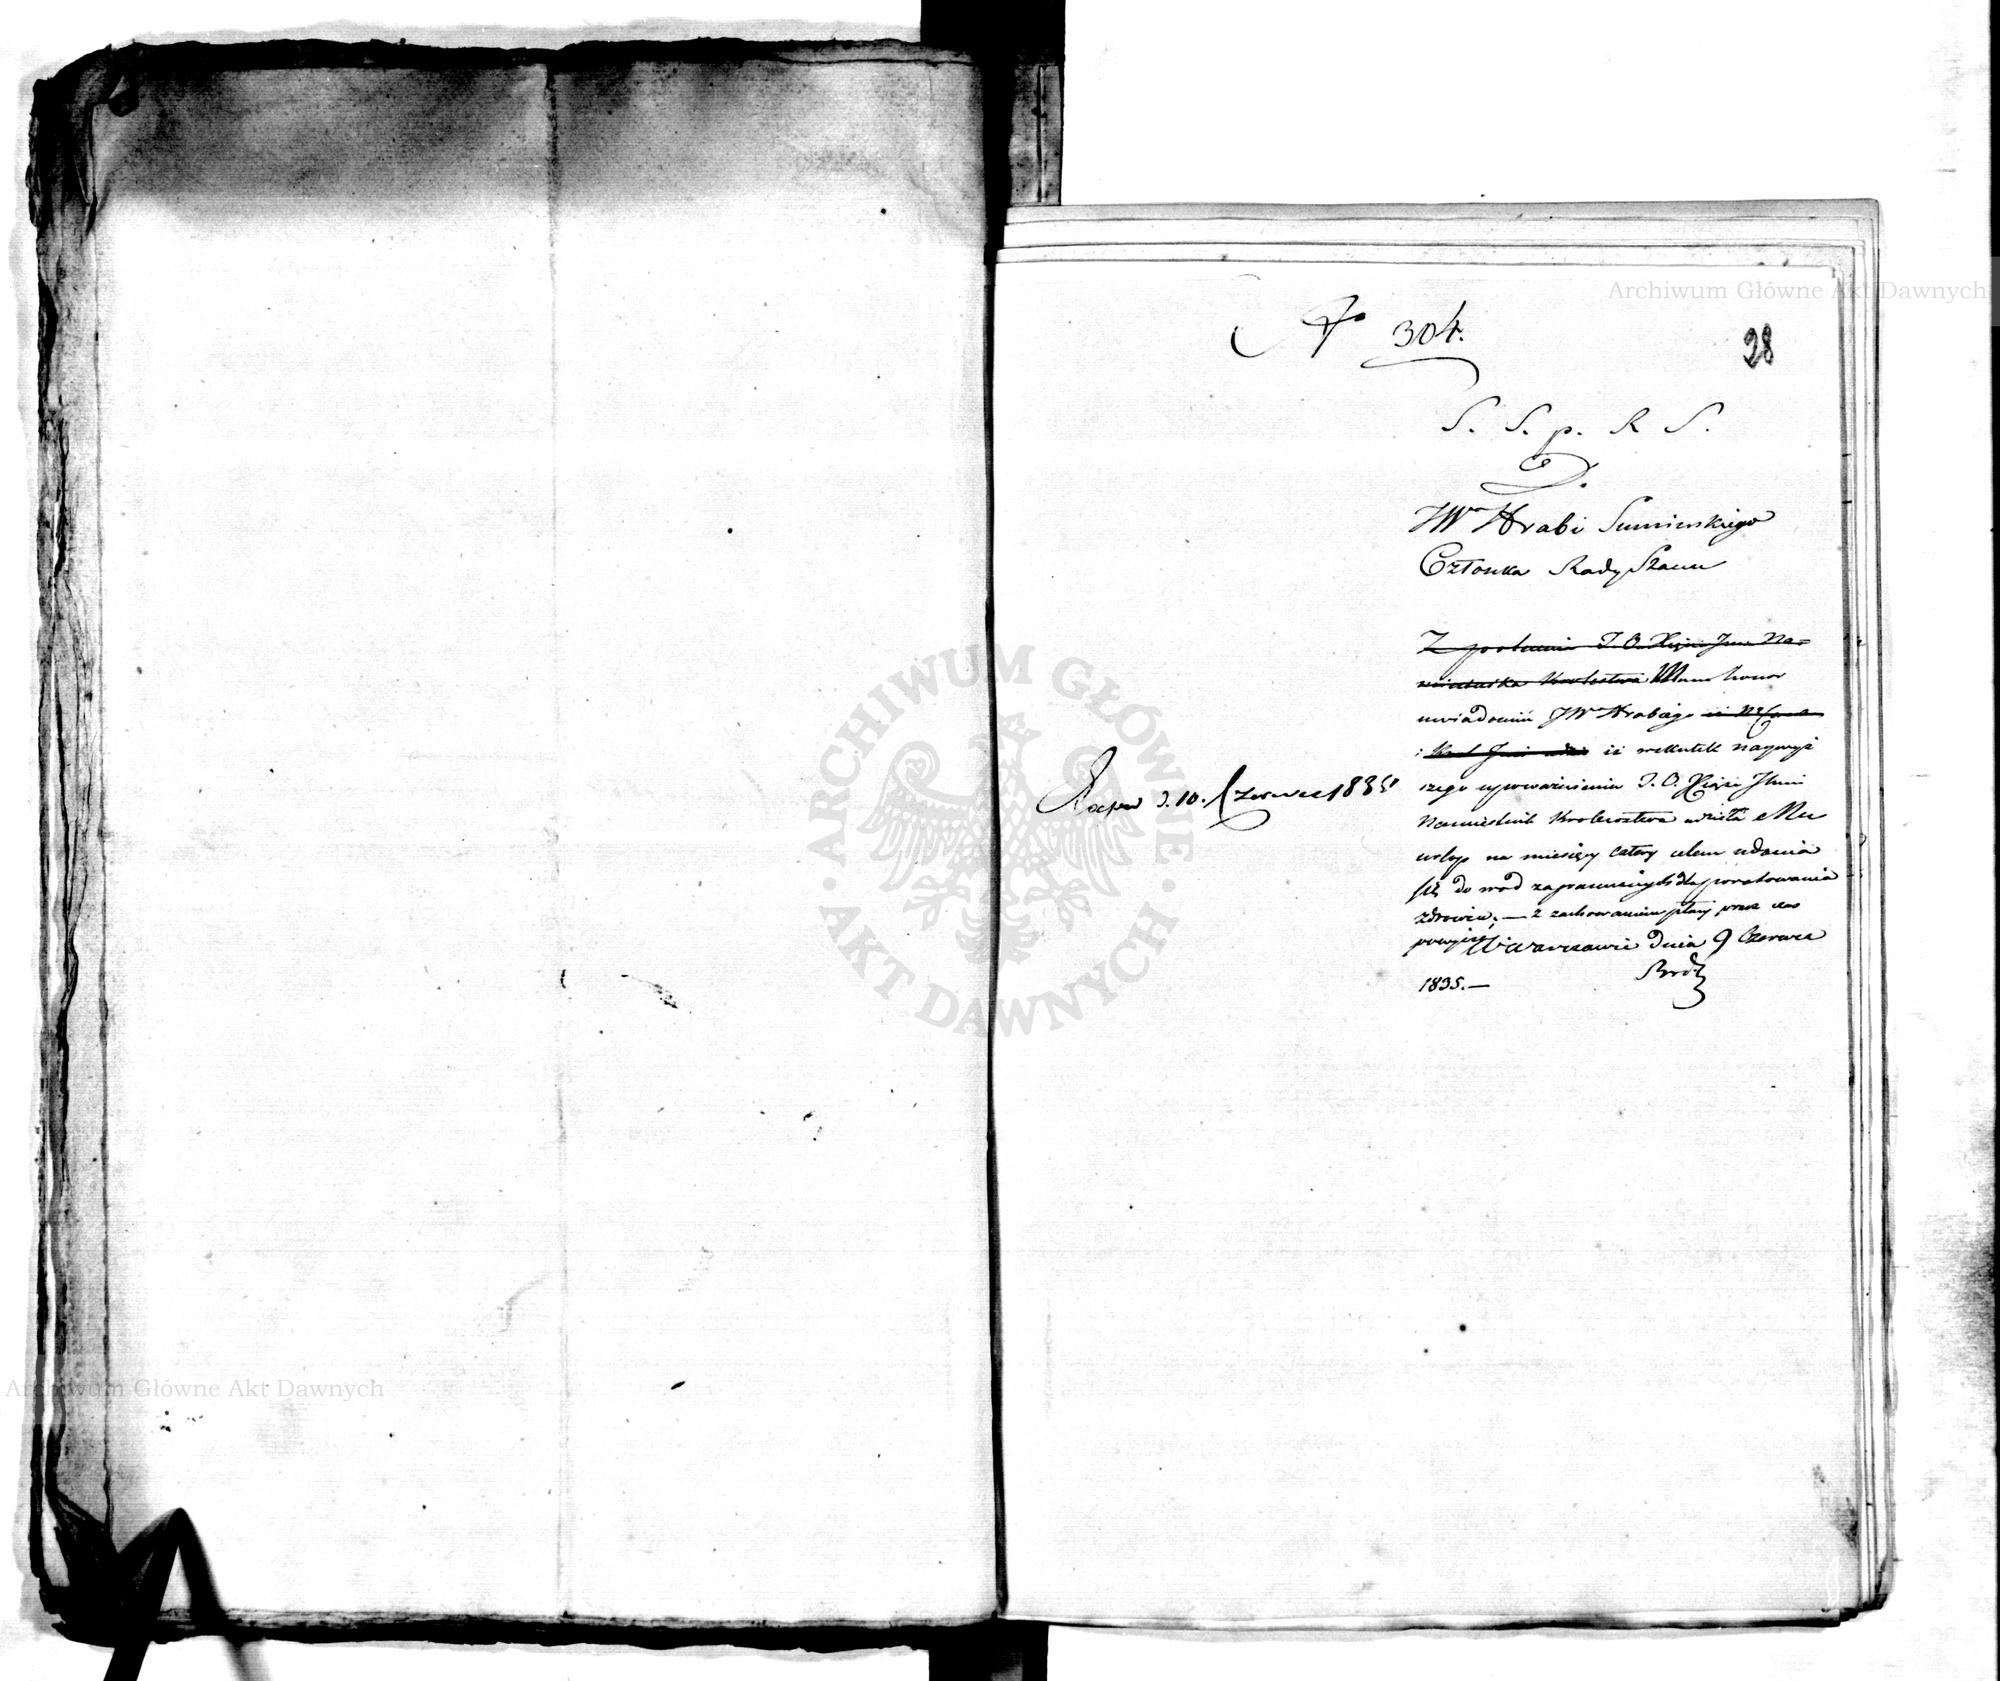 Archiwum Główne Akt Dawnych
No 304.
28
S. S. p. R S.
Do
JWo Hrabi Sumińskiego
Członka Rady Stanu
Z polecenia J. O. Xięcia Jmci Na-
miestnika Królestwa Mam honor
uwiadomić JWo Hrabiego iż
iż wskutek naywyż
szego upoważnienia J. O. Xiąże Jmci
Namiestnik Krolestwa udzielił Mu
urlop na miesięcy cztery celem udania
się do wód zagranicznych dla poratowania
zdrowia. — z zachowaniem płacy przez czas
powyższy w Warszawie dnia 9 Czerwca
1835. —
Exped d. 10. Czerwca 1835
ARCHIWUM GŁÓWNE
AKT DAWNYCH
Archiwum Główne Akt Dawnych